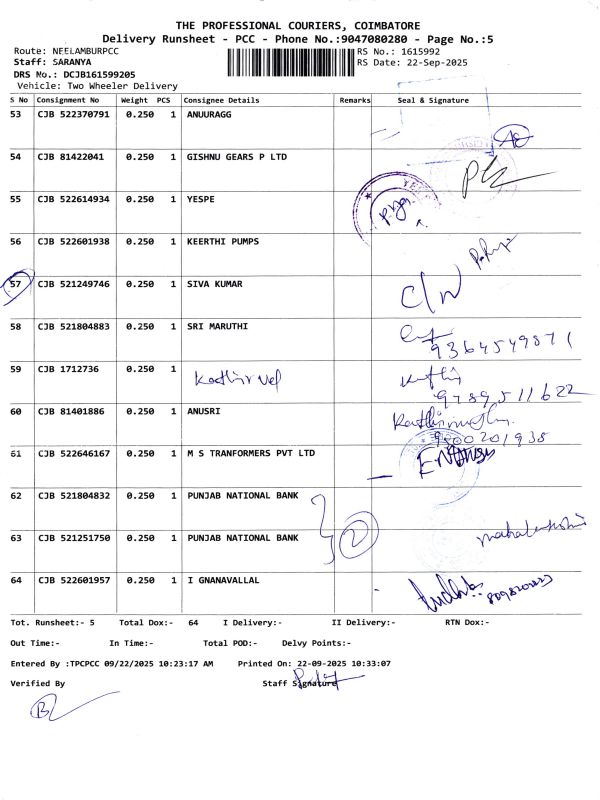 THE PROFESSIONAL COURIERS, COIMBATORE
Delivery Runsheet - PCC - Phone No.:9047080280 - Page No.:5
Route: NEELAMBURPCC RS No.: 1615992
Staff: SARANYA RS Date: 22-Sep-2025
DRS No.: DCJB161599205
Vehicle: Two Wheeler Delivery
S No Consignment No Weight PCS Consignee Details Remarks Seal & Signature
53 CJB 522370791 0.250 1 ANUURAGG
54 CJB 81422041 0.250 1 GISHNU GEARS P LTD
55 CJB 522614934 0.250 1 YESPE
56 CJB 522601938 0.250 1 KEERTHI PUMPS
57 CJB 521249746 0.250 1 SIVA KUMAR C/N
58 CJB 521804883 0.250 1 SRI MARUTHI
9364549871
59 CJB 1712736 0.250 1 Kathirvel
9789511622
60 CJB 81401886 0.250 1 ANUSRI
9500201935
61 CJB 522646167 0.250 1 M S TRANFORMERS PVT LTD
62 CJB 521804832 0.250 1 PUNJAB NATIONAL BANK
2
63 CJB 521251750 0.250 1 PUNJAB NATIONAL BANK
64 CJB 522601957 0.250 1 I GNANAVALLAL
Tot. Runsheet:- 5 Total Dox:- 64 I Delivery:- II Delivery:- RTN Dox:-
Out Time:- In Time:- Total POD:- Delvy Points:-
Entered By :TPCPCC 09/22/2025 10:23:17 AM Printed On: 22-09-2025 10:33:07
Verified By Staff Signature